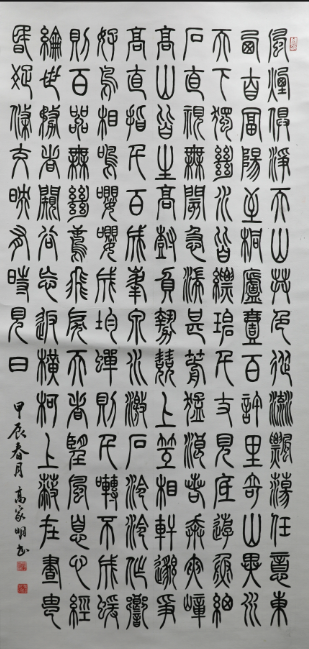 風煙俱淨天山共色從流飄蕩任意東
西自富陽至桐廬壹百許里奇山異水
天下獨絕水皆縹碧千丈見底游魚細
石直視無礙急湍甚箭猛浪若奔夾岸
高山皆生寒樹負勢競上互相軒邈爭
高直指千百成峰泉水激石泠泠作響
好鳥相鳴嚶嚶成韻蟬則千轉不窮猿
則百叫無絕鳶飛戾天者望峰息心經
綸世務者窺谷忘返橫柯上蔽在晝猶
昏疏條交映有時見日
甲辰春月高家明書